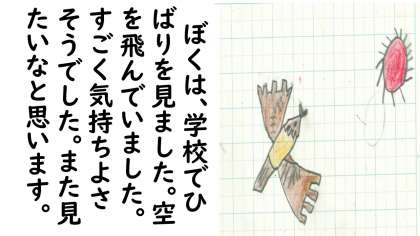 ぼくは、学校でひ
ばりを見ました。空
を飛んでいました。
すごく気持ちよさ
そうでした。また見
たいなと思います。